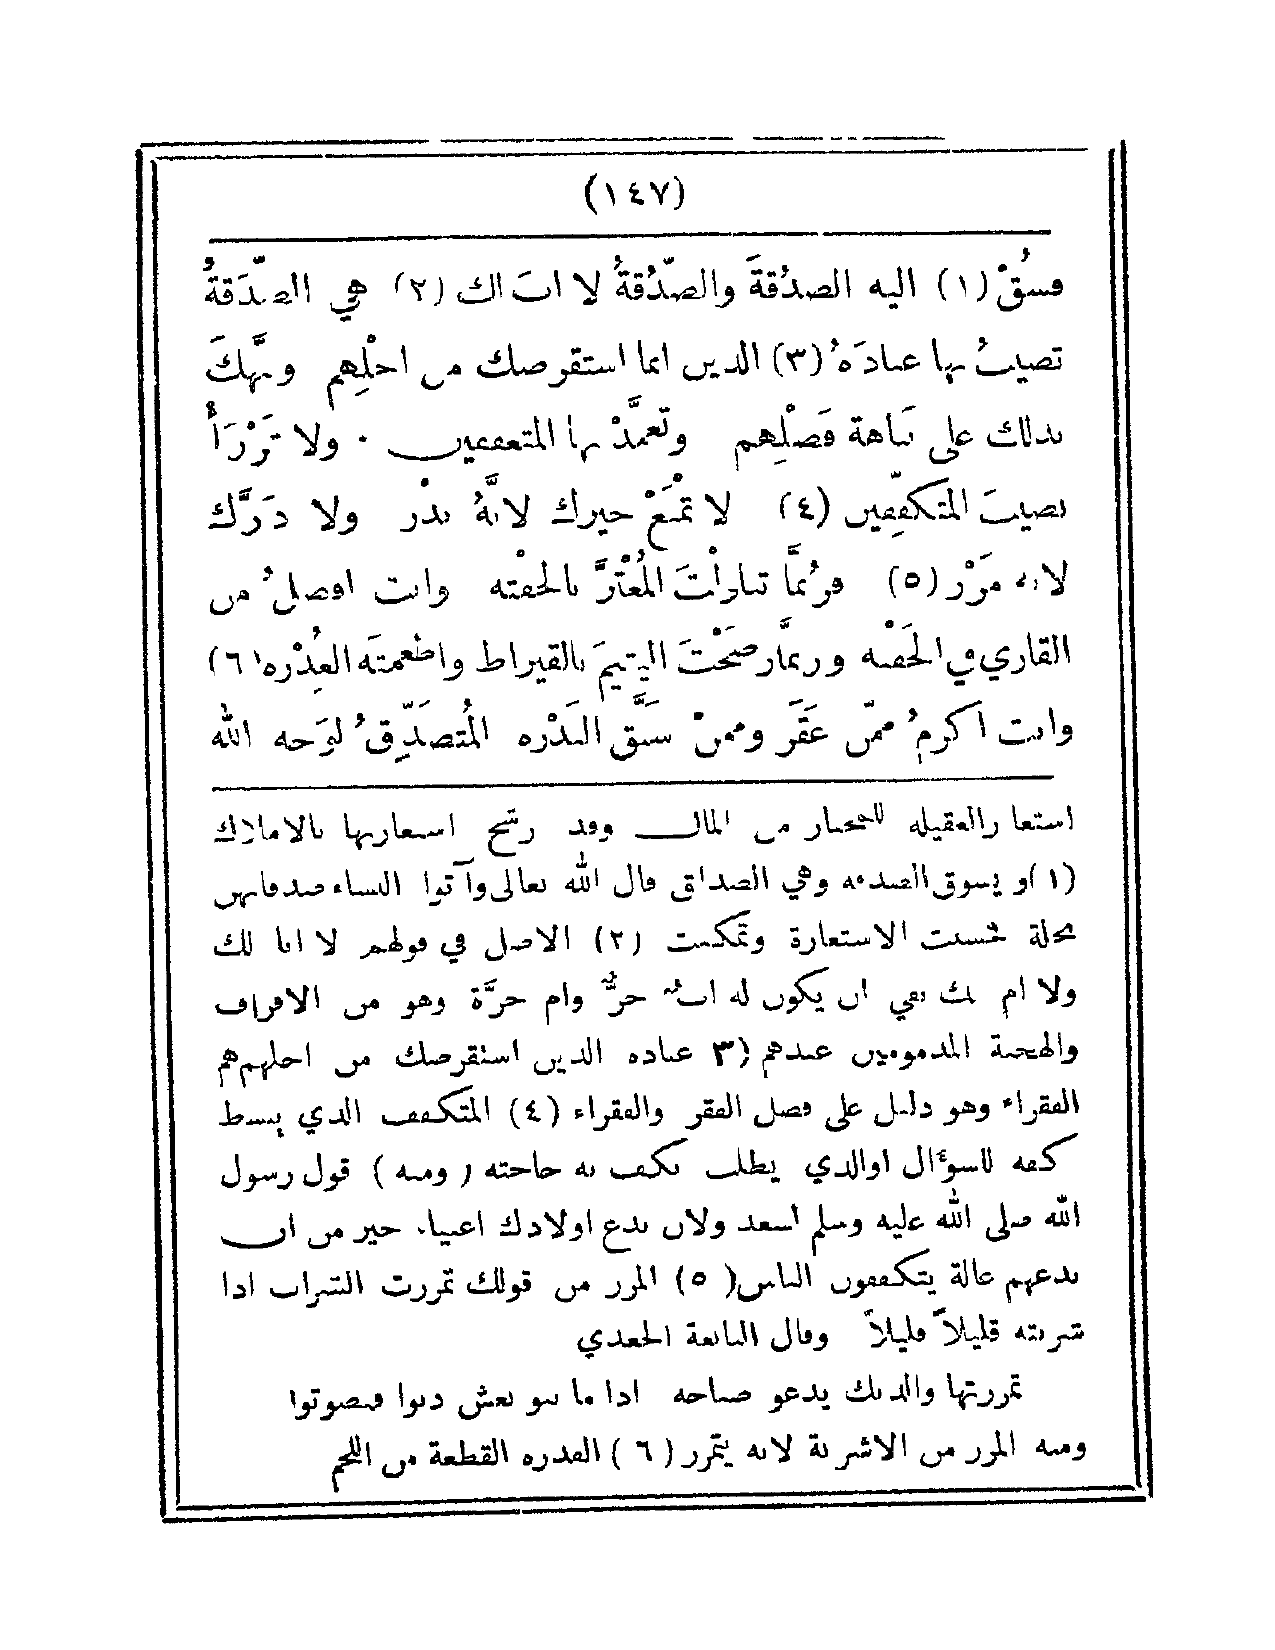 (١٤٧)
فسُقْ (١) اليه الصدُقةَ والصّدُقةُ لا ابَ لك (٢) هي الصّدَقةُ
تصيبُ بها عبادَهُ (٣) الذين انما استقرضك من اجْلِهم ونبَّهكَ
بذلك على نَباهة فَضْلِهم وتَعمَّدْ بها المتعففين . ولا تَرْزَأْ
نصيبَ المتكفّفين (٤) لا تمْنَعْ خيرك لانَّهُ نذْر ولا دَرَّك
لانه مَزْر (٥) فرُبمَّا تبارَكْتَ المُعْتَرَّ بالحفْنه وانت افضلُ من
القاري في الجَفْنه وربمَّا رضَخْتَ اليتيمَ بالقيراط واطْعمتَه العُذْره (٦)
وانت اكرمُ ممّن عَقَر وممنْ سبَّق البَدْره المُتصَدِّقُ لوَجه الله
استعار العقيله للمختار من المال وقد رشح استعارتها بالاملاك
(١) و بسوق الصدقه وهي الصداق قال الله تعالى وآتوا النساء صدقاتهن
نحلة فحسنت الاستعارة وتمكنت (٢) الاصل في قولهم لا ابا لك
ولا ام لك نفي ان يكون له ابٌ حرٌّ وام حرَّة وهو من الاقراف
والهجنة المذمومين عندهم (٣ عباده الذين استقرضك من اجلهم هم
الفقراء وهو دليل على فضل الفقر والفقراء (٤) المتكفف الذي يبسط
كفه للسؤال او الذي يطلب بكف به حاجته ( ومنه ) قول رسول
الله صلى الله عليه وسلم لسعد ولان تدع اولادك اغنياء خير من ان
تدعهم عالة يتكففون الناس (٥) المزر من قولك تمزرت الشراب اذا
شربته قليلاً قليلاً وقال النابغة الجعدي
تمززتها والديك يدعو صباحه اذا ما بنو نعش دنوا فتصوبوا
ومنه المزر من الاشربة لانه يتمزر (٦) الفدره القطعة من اللحم